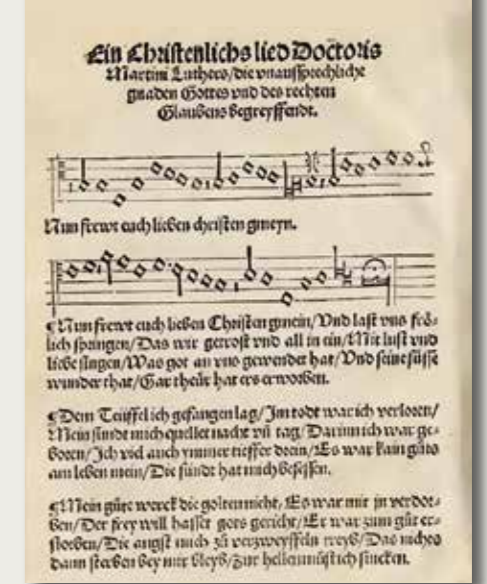 Ein Christenlichs lied Doctoris
Martini Luthers/die vnaussprechliche
gnaden Gottes vnd des rechten
Glaubens begreyffendt.
Nun frewt euch lieben christen gmeyn.
¶Nun frewt euch lieben Christen gmein/Vnd last vns frö-
lich springen/Das wir getrost vnd all in ein/Mit lust vnd
liebe singen/Was got an vns gewendet hat/Vnd seine süsse
wunder that/Gar theür hat ers erworben.
¶Dem Teüffel ich gefangen lag/Im todt war ich verloren/
Mein sündt mich quellet nacht vñ tag/Darinn ich war ge-
boren/Ich viel auch ymmer tieffer drein/Es war kain gůts
am leben mein/Die sündt hat mich besessen.
¶Mein gůte werck die golten nicht/Es war mit jn verdor-
ben/Der frey will hasset gots gericht/Er war zum gůt er-
storben/Die angst mich zů verzweyffeln treyb/Das nichts
dann sterben bey mir bleyb/Zur hellen můst ich sincken.